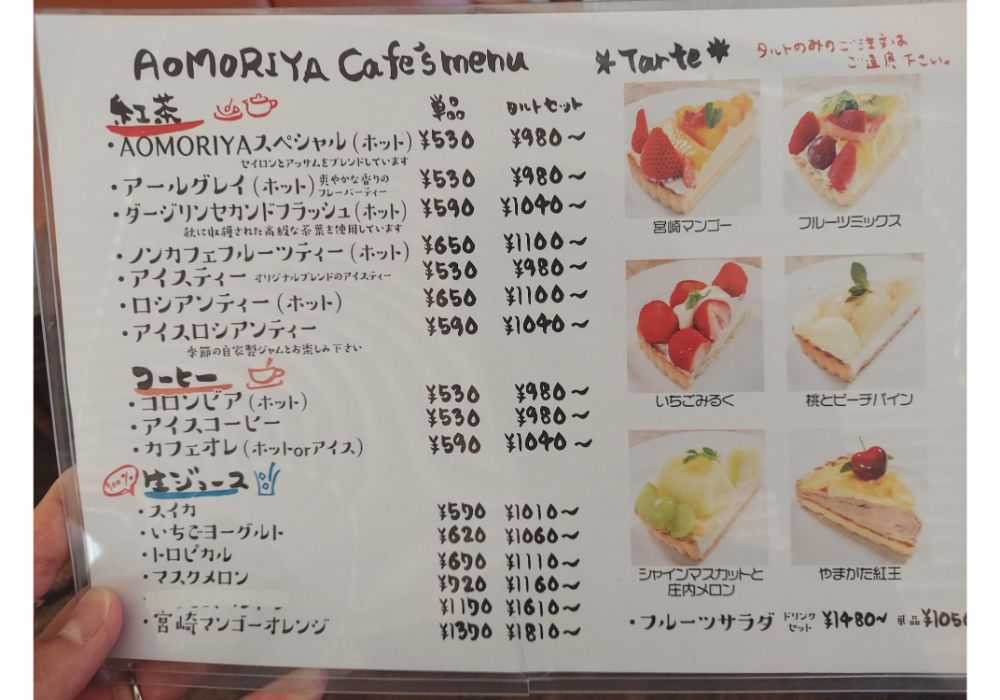 AOMORIYA Cafe's menu
紅茶 単品 タルトセット
・AOMORIYAスペシャル(ホット) ¥530 ¥980～
セイロンとアッサムをブレンドしています
・アールグレイ(ホット) 爽やかな香りの ¥530 ¥980～
フレーバーティー
・ダージリンセカンドフラッシュ(ホット) ¥590 ¥1040～
秋に収穫された高級な茶葉を使用しています
・ノンカフェフルーツティー(ホット) ¥650 ¥1100～
・アイスティー オリジナルブレンドのアイスティー ¥530 ¥980～
・ロシアンティー(ホット) ¥650 ¥1100～
・アイスロシアンティー ¥590 ¥1040～
季節の自家製ジャムとお楽しみ下さい
コーヒー
・コロンビア(ホット) ¥530 ¥980～
・アイスコーヒー ¥530 ¥980～
・カフェオレ(ホットorアイス) ¥590 ¥1040～
100% 生ジュース
・スイカ ¥570 ¥1010～
・いちごヨーグルト ¥620 ¥1060～
・トロピカル ¥670 ¥1110～
・マスクメロン ¥720 ¥1160～
¥1170 ¥1610～
・宮崎マンゴーオレンジ ¥1370 ¥1810～
*Tarte*
タルトのみのご注文は
ご遠慮下さい。
宮崎マンゴー
フルーツミックス
いちごみるく
桃とピーチパイン
シャインマスカットと
庄内メロン
やまがた紅王
・フルーツサラダ ドリンク ¥1480～ 単品 ¥1050
セット